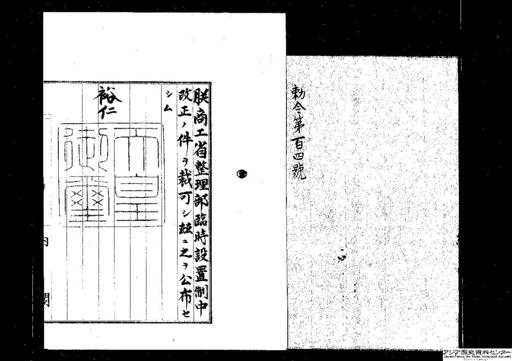 勅令第百四號
朕商工省整理部臨時設置制中
改正ノ件ヲ裁可シ茲ニ之ヲ公布セ
シム
裕仁
天皇
御璽
アジア歴史資料センター